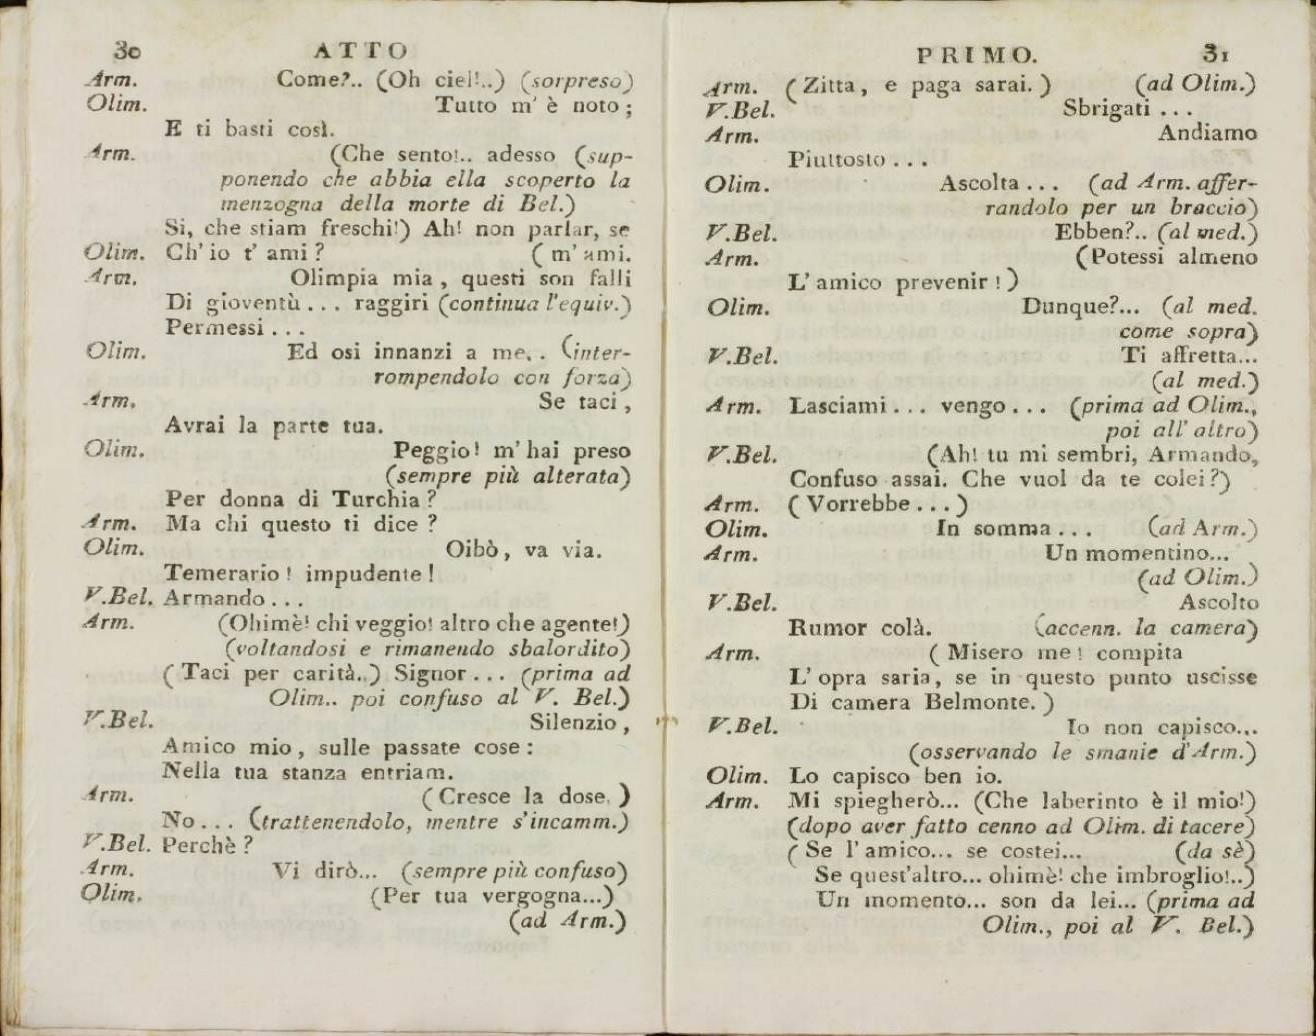 30 ATTO
Arm. Come?.. (Oh ciel!..) (sorpreso)
Olim. Tutto m' è noto;
E ti basti così.
Arm. (Che sento!.. adesso (sup-
ponendo che abbia ella scoperto la
menzogna della morte di Bel.)
Si, che stiam freschi!) Ah! non parlar, se
Olim. Ch' io t' ami? (m' ami.
Arm. Olimpia mia, questi son falli
Di gioventù... raggiri (continua l'equiv.)
Permessi...
Olim. Ed osi innanzi a me.. (inter-
rompendolo con forza)
Arm. Se taci,
Avrai la parte tua.
Olim. Peggio! m' hai preso
(sempre più alterata)
Per donna di Turchia?
Arm. Ma chi questo ti dice?
Olim. Oibò, va via.
Temerario! impudente!
V.Bel. Armando...
Arm. (Ohimè! chi veggio! altro che agente!)
(voltandosi e rimanendo sbalordito)
(Taci per carità..) Signor... (prima ad
Olim.. poi confuso al V. Bel.)
V.Bel. Silenzio,
Amico mio, sulle passate cose:
Nella tua stanza entriam.
Arm. (Cresce la dose.)
No... (trattenendolo, mentre s'incamm.)
V.Bel. Perchè?
Arm. Vi dirò... (sempre più confuso)
Olim. (Per tua vergogna...)
(ad Arm.)
PRIMO. 31
Arm. (Zitta, e paga sarai.) (ad Olim.)
V.Bel. Sbrigati...
Arm. Andiamo
Piuttosto...
Olim. Ascolta... (ad Arm. affer-
randolo per un braccio)
V.Bel. Ebben?.. (al med.)
Arm. (Potessi almeno
L' amico prevenir!)
Olim. Dunque?... (al med.
come sopra)
V.Bel. Ti affretta...
(al med.)
Arm. Lasciami... vengo... (prima ad Olim.,
poi all' altro)
V.Bel. (Ah! tu mi sembri, Armando,
Confuso assai. Che vuol da te colei?)
Arm. (Vorrebbe...)
Olim. In somma... (ad Arm.)
Arm. Un momentino...
(ad Olim.)
V.Bel. Ascolto
Rumor colà. (accenn. la camera)
Arm. (Misero me! compita
L' opra saria, se in questo punto uscisse
Di camera Belmonte.)
V.Bel. Io non capisco...
(osservando le smanie d'Arm.)
Olim. Lo capisco ben io.
Arm. Mi spiegherò... (Che laberinto è il mio!)
(dopo aver fatto cenno ad Olim. di tacere)
(Se l' amico... se costei... (da sè)
Se quest'altro... ohimè! che imbroglio!..)
Un momento... son da lei... (prima ad
Olim., poi al V. Bel.)